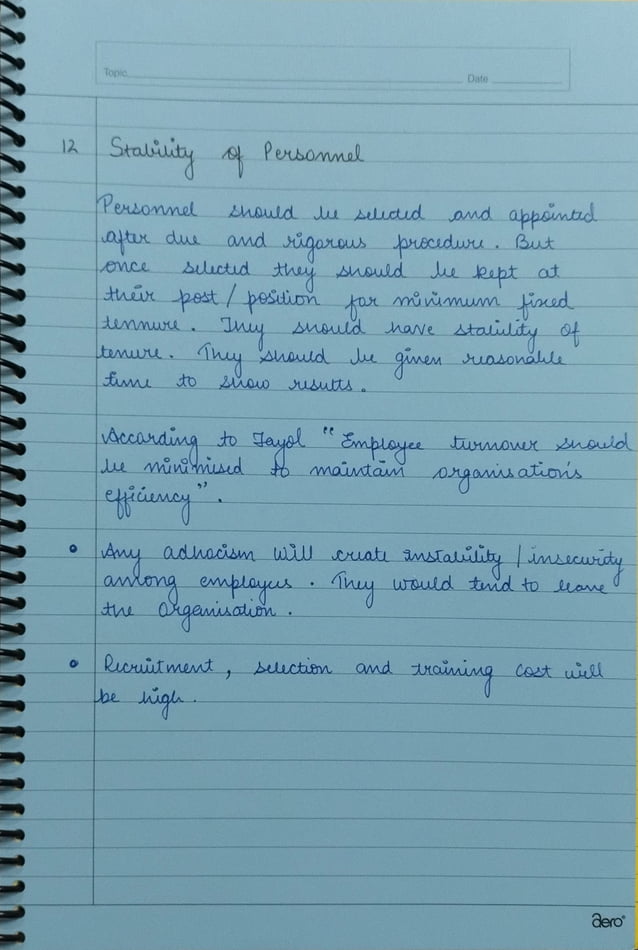 Topic Date
12 Stability of Personnel
Personnel should be selected and appointed
after due and rigorous procedure. But
once selected they should be kept at
their post / position for minimum fixed
tennure. They should have stability of
tenure. They should be given reasonable
time to show results.
According to Fayol "Employee turnover should
be minimised to maintain organisation's
efficiency".
Any adhocism will create instability / insecurity
among employees. They would tend to leave
the organisation.
Recruitment, selection and training cost will
be high.
aero